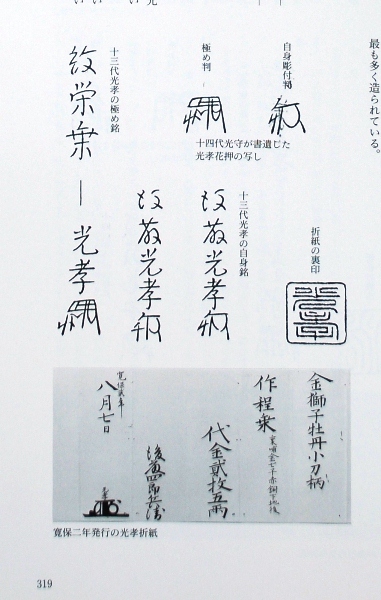 最も多く造られている。
自身彫付判
極め判
十四代光守が書遺した
光孝花押の写し
十三代光孝の極め銘
紋栄乗―光孝
折紙の裏印
十三代光孝の自身銘
光孝
光孝
金獅子牡丹小刀柄
作程乗
代金貳枚五両
後藤四郎兵衛
寛保貳年
八月七日
寛保二年発行の光孝折紙
319